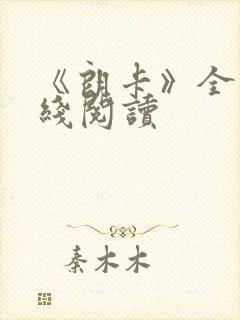 《朗卡》全
綫閱讀
秦木木